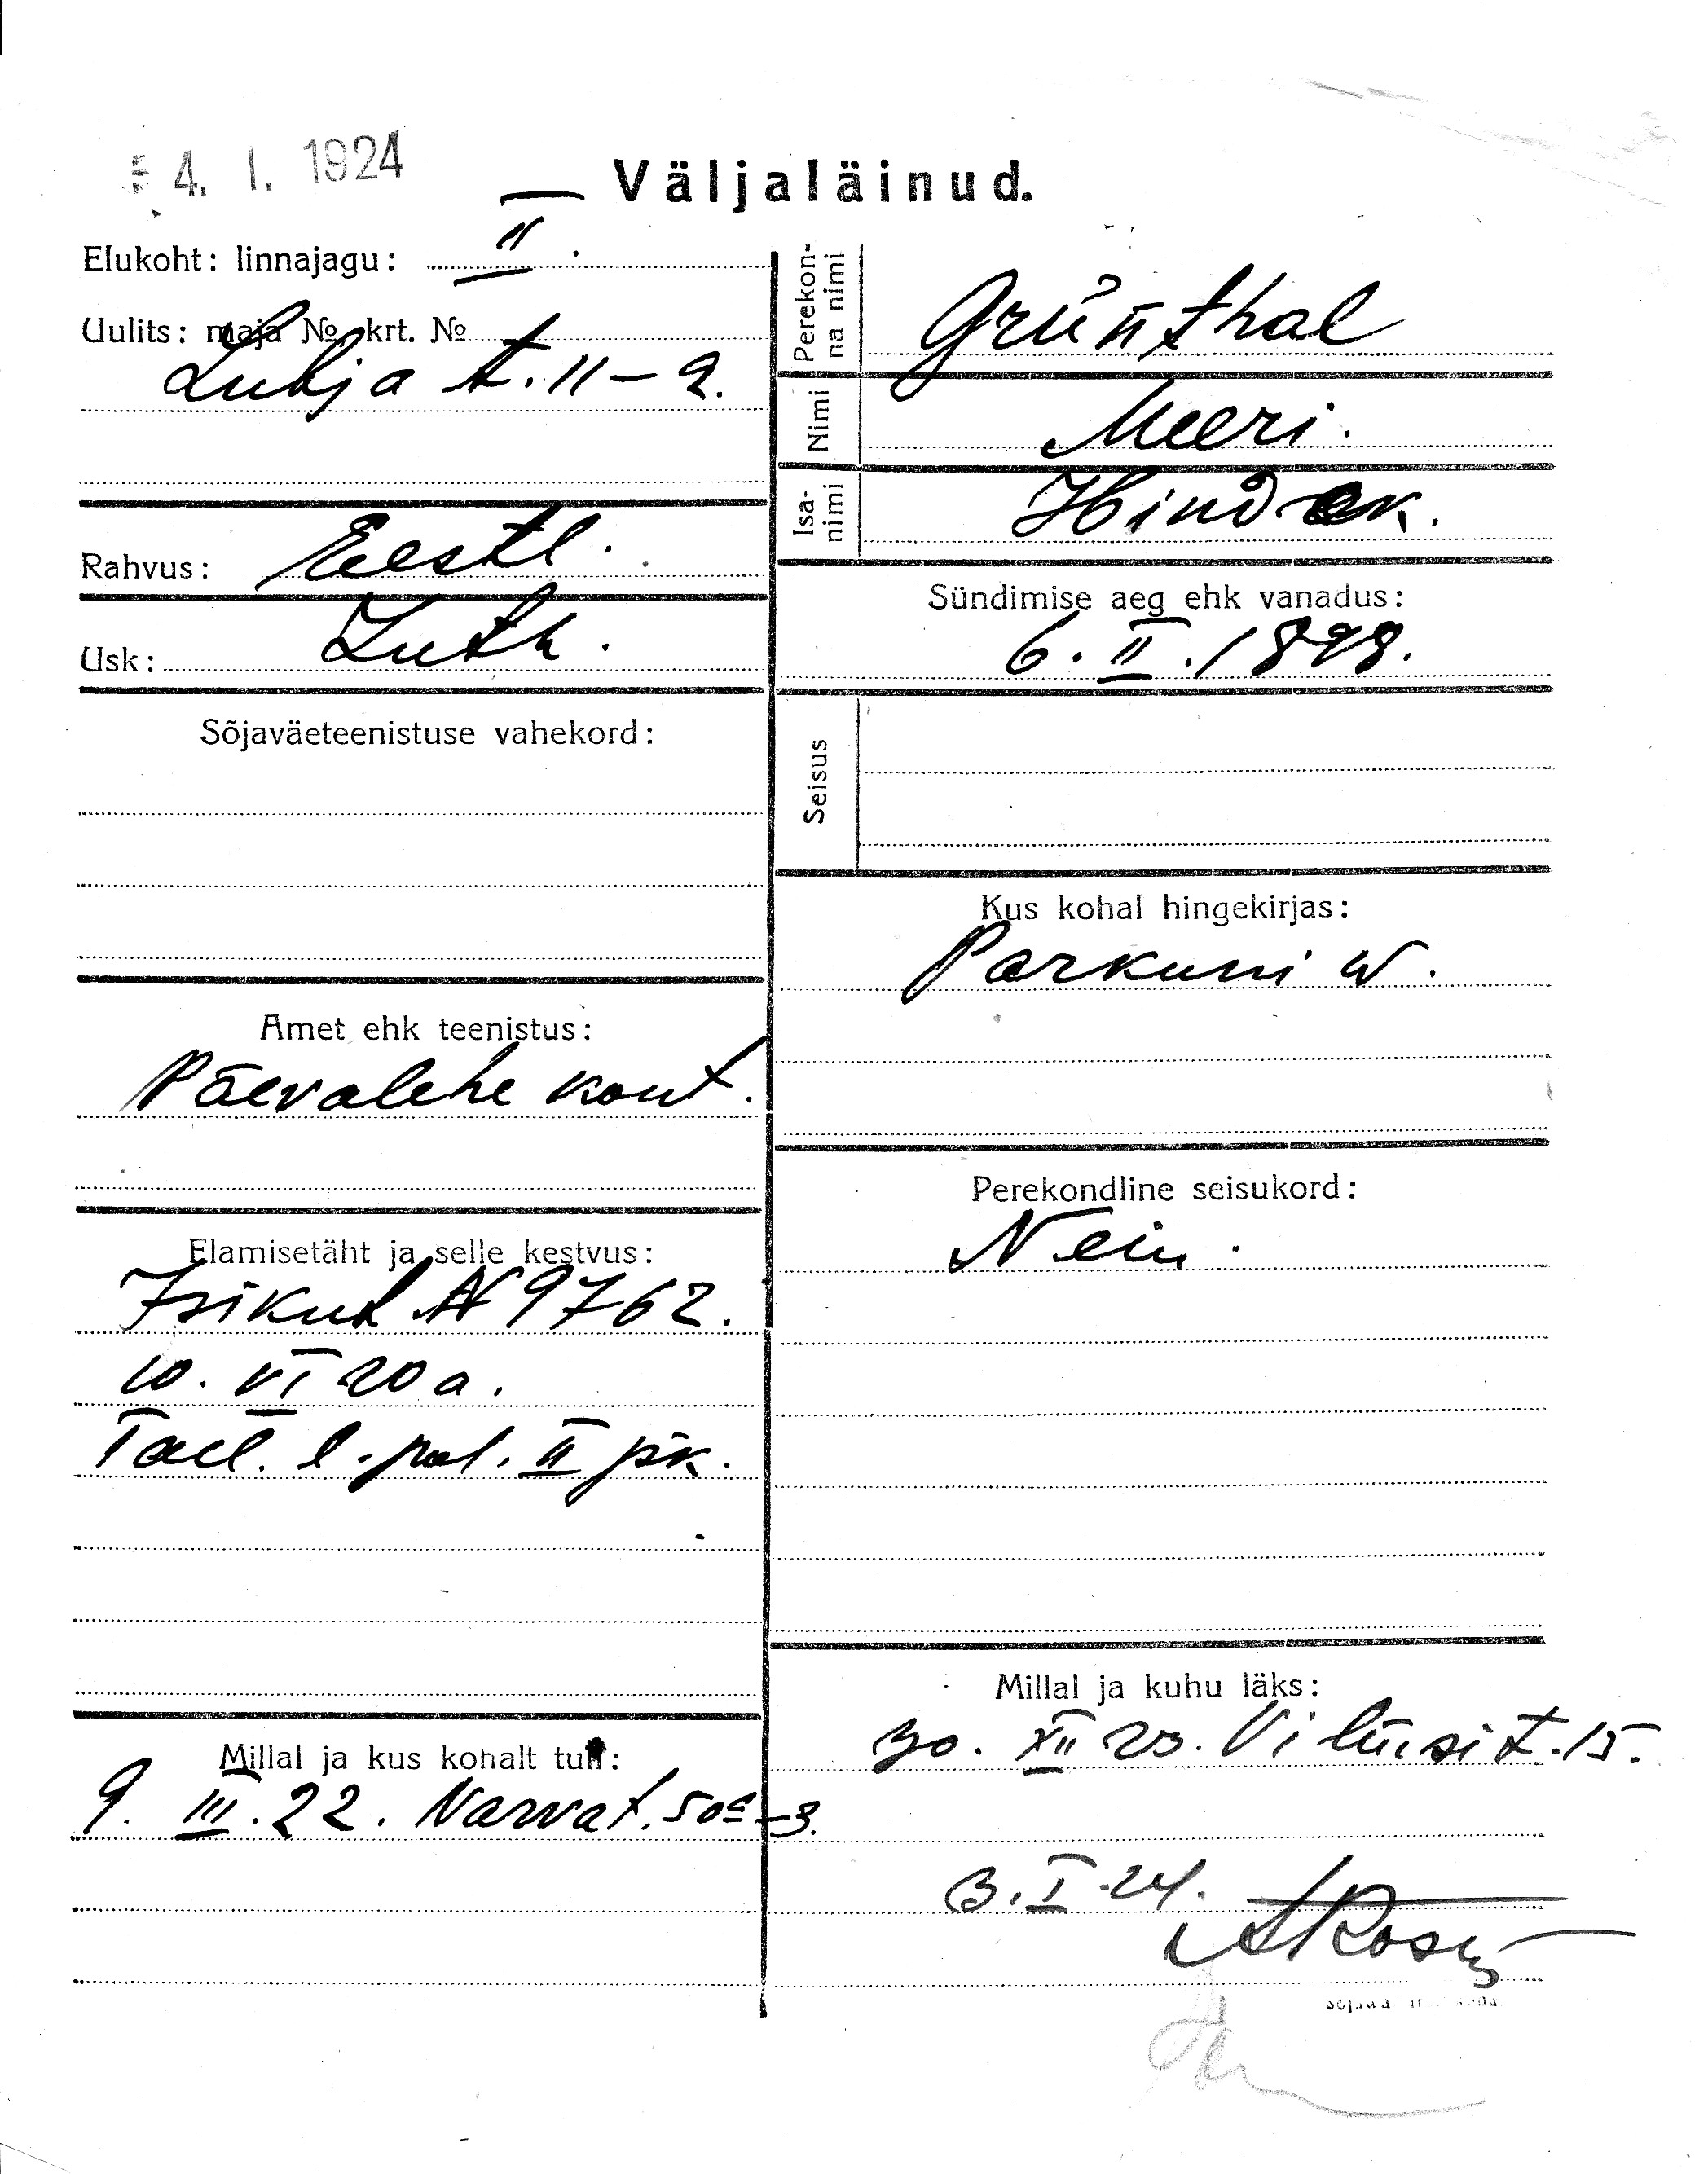 4. I. 1924
Väljaläinud.
Elukoht: linnajagu: II.
Uulits: maja № krt. №
Lubja t. 11-2.
Rahvus: Eestl.
Usk: Luth.
Sõjaväeteenistuse vahekord:
Amet ehk teenistus:
Päevalehe kont.
Elamisetäht ja selle kestvus:
Isikut № 9762.
10. VI 20 a.
Tall. l. pol. II jsk.
Millal ja kus kohalt tuli:
9. III. 22. Narva t. 50c-3.
Perekonna nimi
Grünthal
Nimi
Meeri.
Isanimi
Hindrek.
Sündimise aeg ehk vanadus:
6. II. 1898.
Seisus
Kus kohal hingekirjas:
Porkuni w.
Perekondline seisukord:
Neiu.
Millal ja kuhu läks:
30. XII 23. t. 15.
3. I. 24.